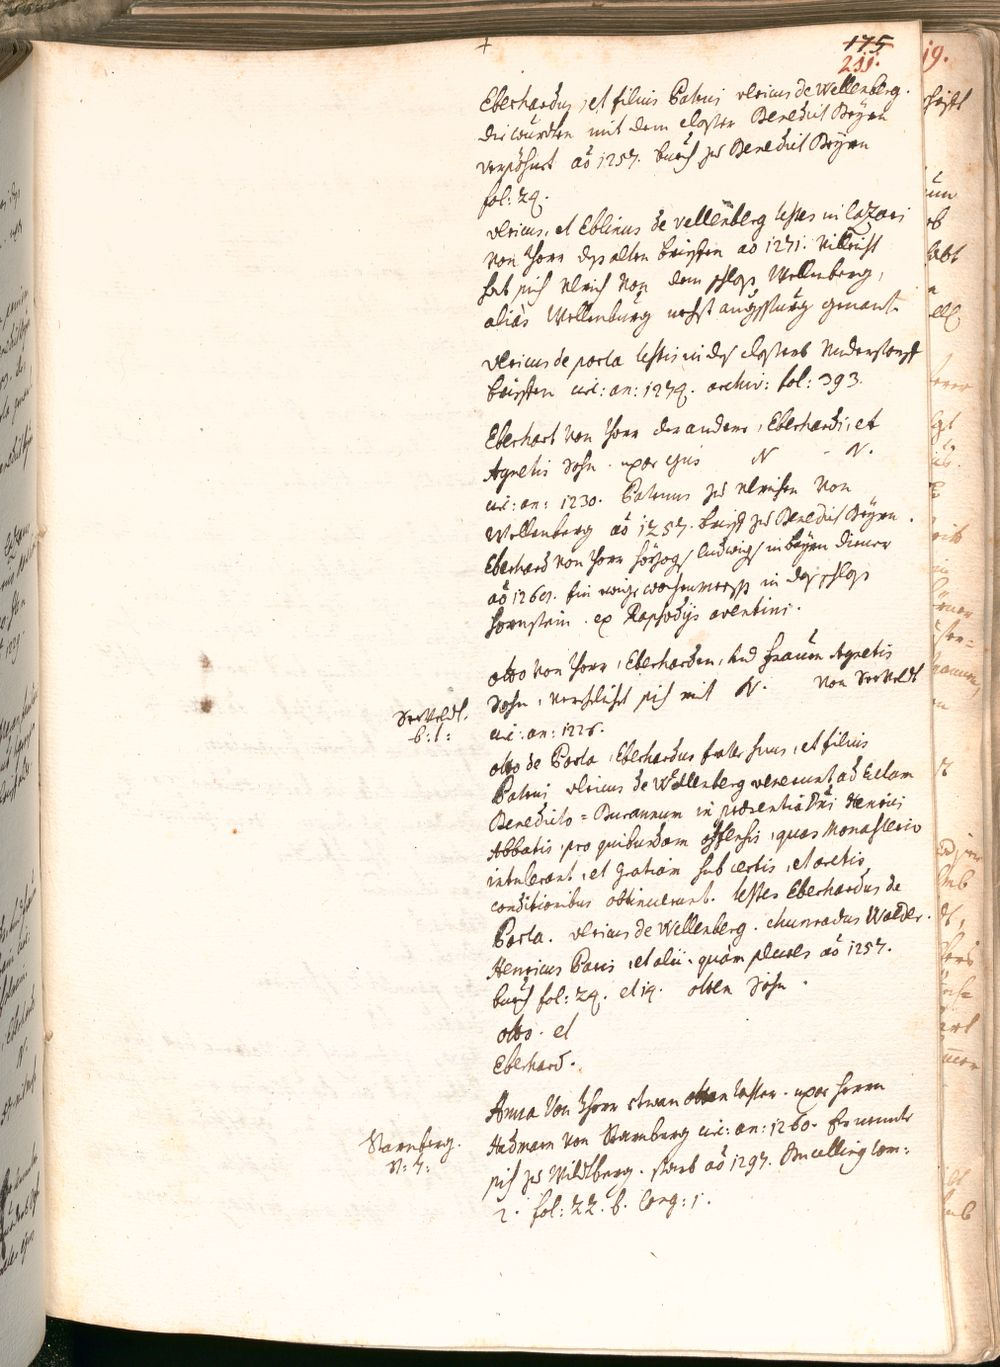 +
175
211.
Eberhardus, et filius Patrui ulricus de Wellenberg.
die wurden mit dem closter Benedict Beÿrn
versöhnt aō 1257. buech zu Benedict Beÿrn
fol: 29.
ulricus, et Eblinus de vellenberg testes in Lazari
von Thorr des alten brieffen ao 1271. villeicht
hat sich ulrich von dem schloss Wellenberg,
alias Wellenburg nechst augspurg genant.
ulricus de porta testis in des closters Understorff
brieffen circ: an: 1279. archiv: fol: 393.
Eberhart von Thorr der ander, Eberhardi, et
Agnetis Sohn. uxor ejus N - N.
circ: an: 1230. Patruus zu ulrichen von
Wellenberg aō 1257. brieff zu Benedict Beÿrn.
Eberhard von Thorr herzog ludwigs in baÿrn diener
aō 1269. ein ewige wochenmess in des schloss
hornstein. ex Rapsodijs aventini.
otto von Thorr, Eberharden, und frauen Agnetis
Sohn, verehlicht sich mit N. von
circ: an: 1226.
b: 1:
otto de Porta, Eberhardus frater suus, et filius
Patrui ulricus de Wellenberg venerunt ad Eclam
Benedicto = Buranum in praesentia Dñi Henrici
Abbatis pro quibusdam offensis, quas Monasterio
intulerant, et gratiam sub certis, et aretis
conditionibus obtinuerunt. testes Eberhardus de
Porta. ulricus de Wellenberg. chunradus Walder.
Henricus Paris, et alii. quam plures aō 1257.
buech fol: 29. et 19. otten Sohn.
otto. et
Eberhard.
Anna von Thorr etwan otten tochter. uxor herrn
Hadmarn von Starnberg circ: an: 1260. Er nennte
sich zu Wildberg. starb aō 1297. Bucelling tom:
2. fol: 22. b. Cong: 1.
Starnberg.
N: 7: